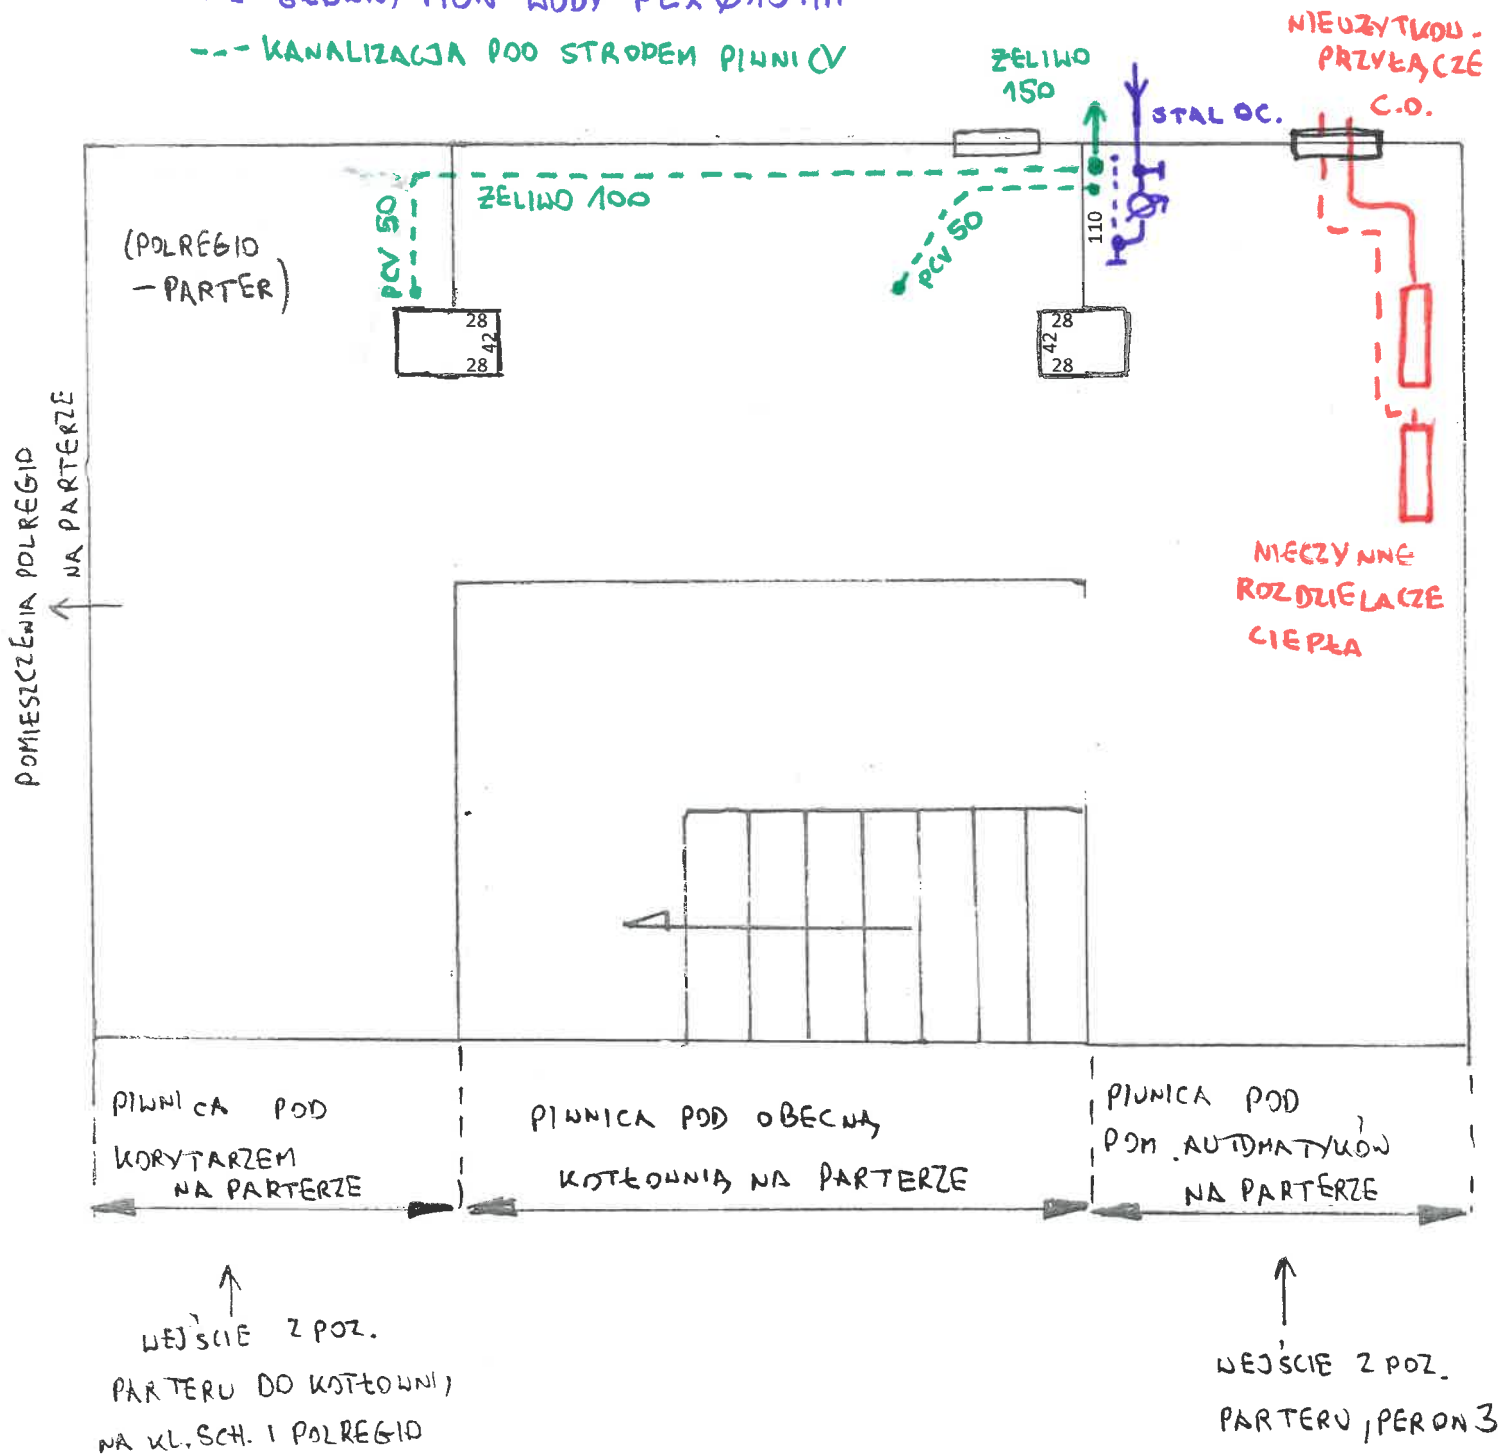 PION WODY PEX
--- KANALIZACJA POD STROPEM PIWNICY
ŻELIWO
150
STAL OC.
NIEUŻYTKOW.
PRZYŁĄCZE
C.O.
ŻELIWO 100
PCV 50
PCV 50
110
(POLREGIO
-PARTER)
28
42
28
28
42
28
POMIESZCZENIA POLREGIO
NA PARTERZE
NIECZYNNE
ROZDZIELACZE
CIEPŁA
PIWNICA POD
KORYTARZEM
NA PARTERZE
PIWNICA POD OBECNĄ
KOTŁOWNIĄ NA PARTERZE
PIWNICA POD
POM. AUTOMATYKÓW
NA PARTERZE
WEJŚCIE Z POZ.
PARTERU DO KOTŁOWNI,
NA KL. SCH. I POLREGIO
WEJŚCIE Z POZ.
PARTERU, PERON 3